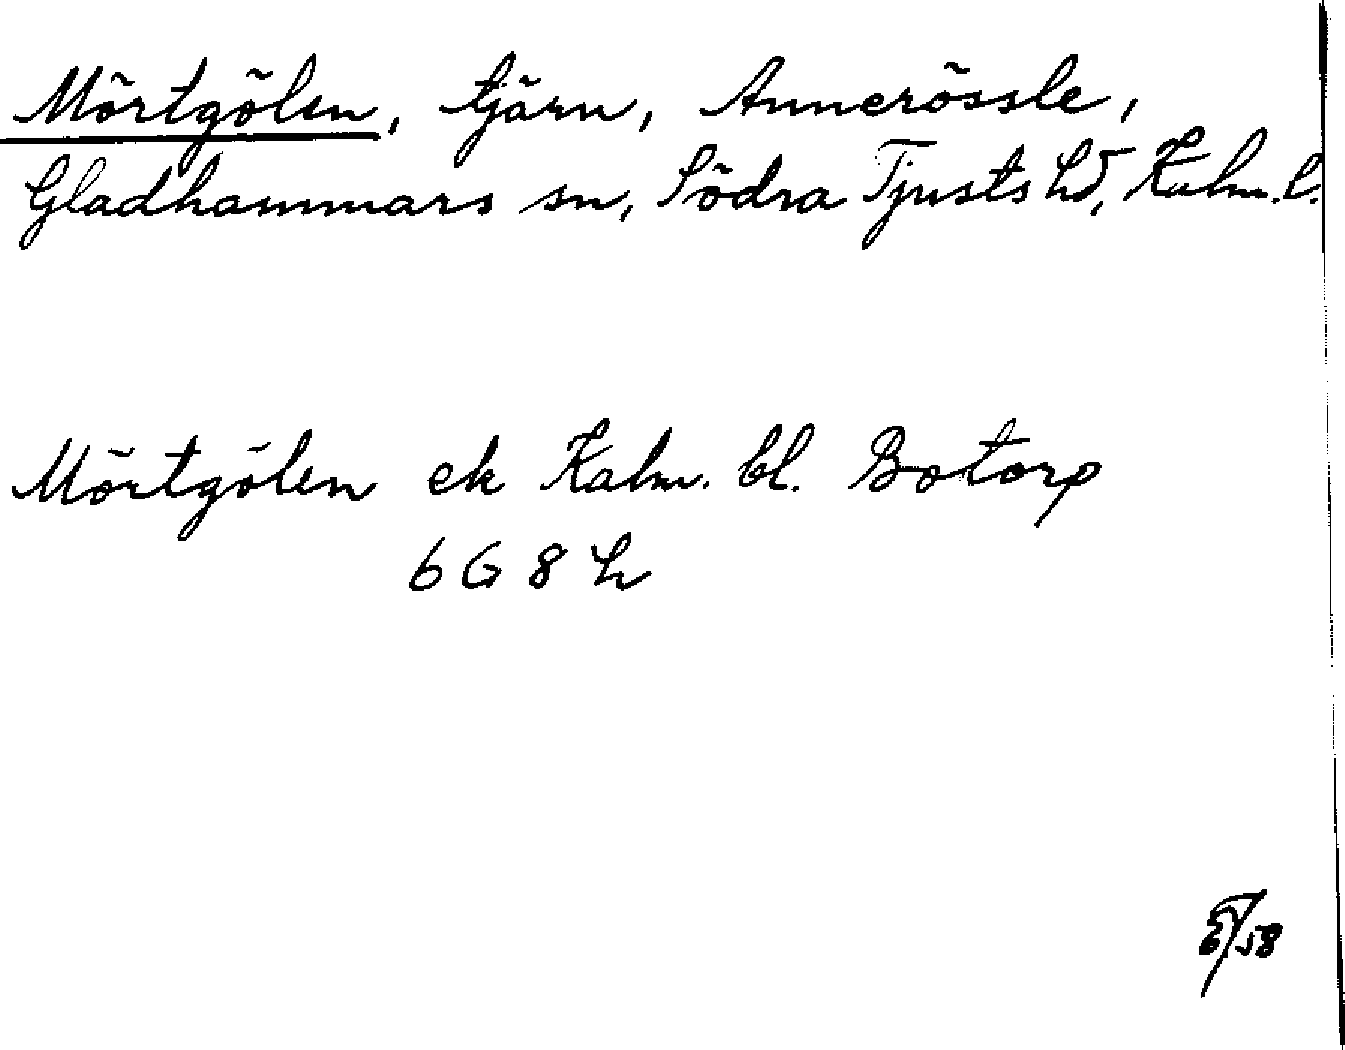 Mörtgölen, tjärn, Annerössle,
Gladhammars sn, Södra Tjusts hd, Kalm. l.
Mörtgölen ek Kalm. bl. Botorp
6 G 8 h